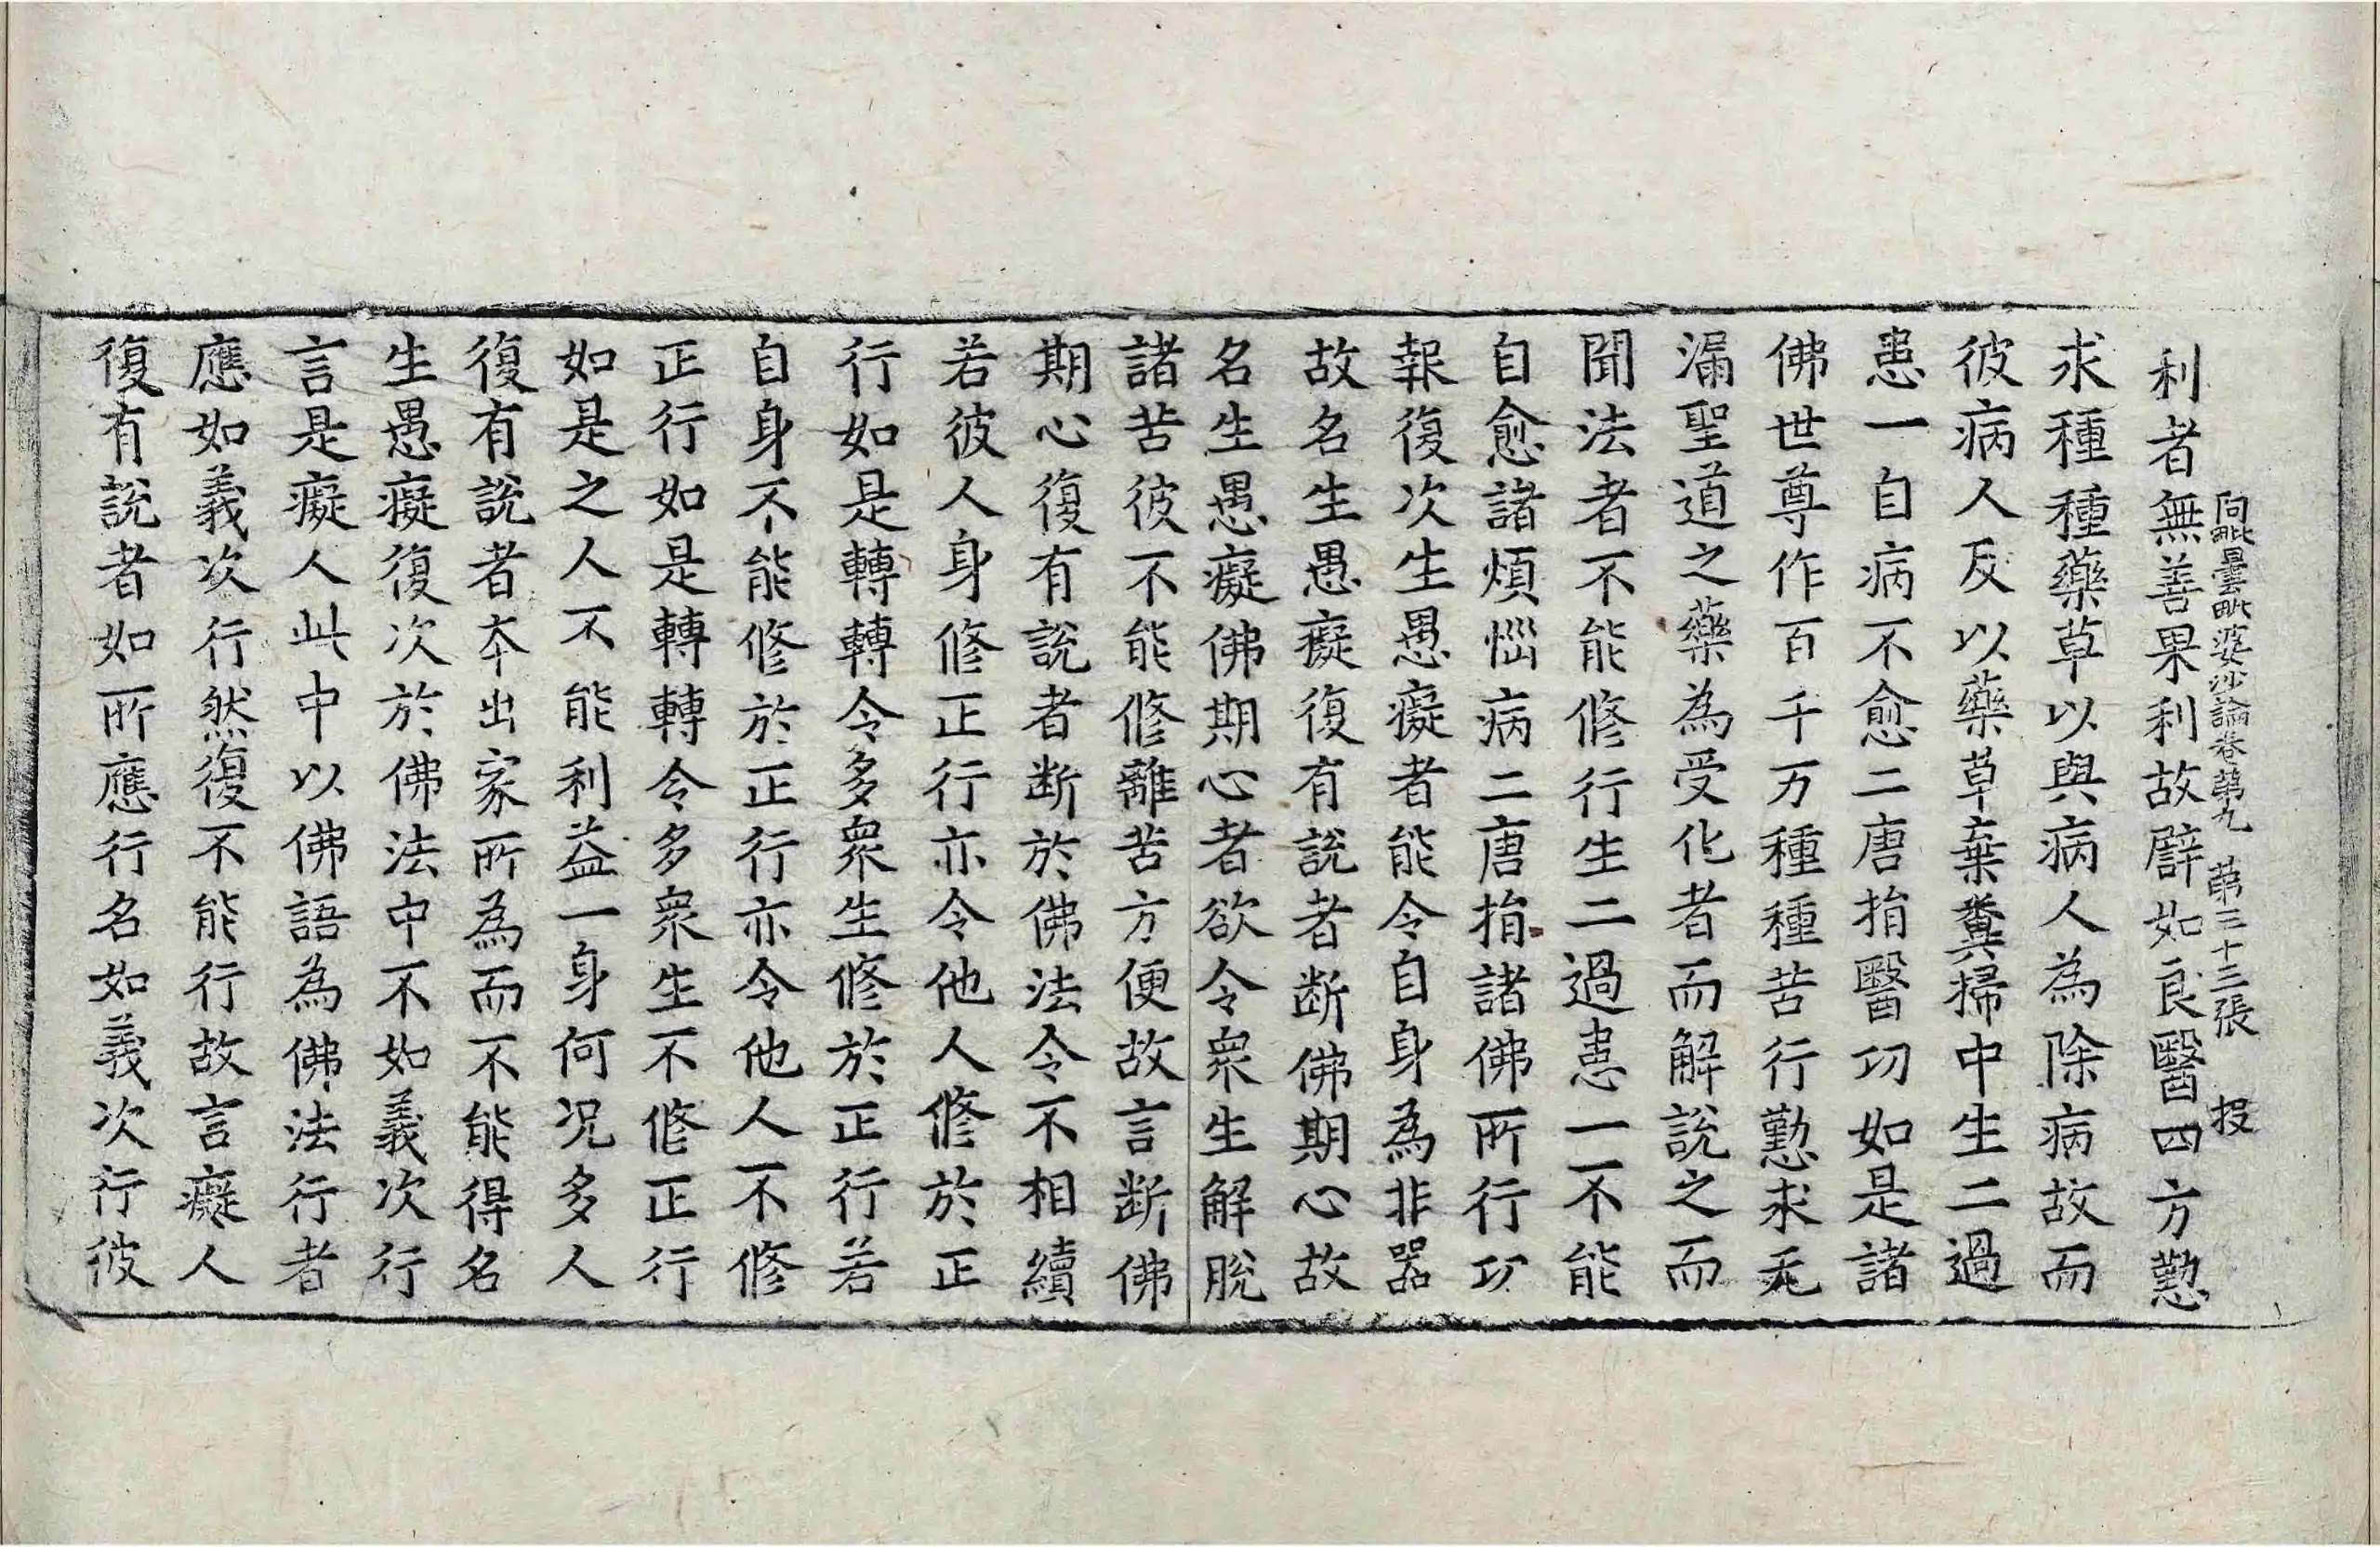 利者無善果利故譬如良醫四方懃
阿毗曇毗婆沙論卷第九 第三十三張 投
求種種藥草以與病人為除病故而
彼病人反以藥草棄糞掃中生二過
患一自病不愈二唐捐醫功如是諸
佛世尊作百千万種種苦行懃求无
漏聖道之藥為受化者而解說之而
聞法者不能修行生二過患一不能
自愈諸煩惱病二唐捐諸佛所行功
報復次生愚癡者能令自身為非器
故名生愚癡復有說者断佛期心故
名生愚癡佛期心者欲令衆生解脫
諸苦彼不能修離苦方便故言断佛
期心復有說者断於佛法令不相續
若彼人身修正行亦令他人修於正
行如是轉轉令多衆生修於正行若
自身不能修於正行亦令他人不修
正行如是轉轉令多衆生不修正行
如是之人不能利益一身何况多人
復有說者夲出家所為而不能得名
生愚癡復次於佛法中不如義次行
言是癡人此中以佛語為佛法行者
應如義次行然復不能行故言癡人
復有說者如所應行名如義次行彼